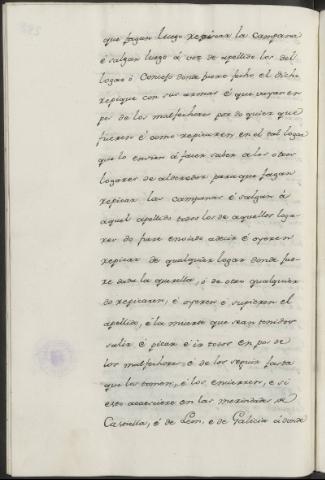 que fagan luego repicar la campana
é salgan luego á voz de apellido los del
logar ó Concejo donde fuere fecho el dicho
repique con sus armas é que vayan en
pos de los malfechores por do quier que
fueren é como repicaren en el tal logar
que lo envien á facer saber a los otros
logares de alderedor para que fagan
repicar las campanas é salgan á
aquel apellido todos los de aquellos loga-
res do fuese enviado adecir é oyeren
repicar de qualquier logar donde fue-
re dada la querella, ó de otro qualquier
do repicaren, é oyeren é supieren el
apellido, é la muerte que sean tenidos
salir é picar é ir todos en pos de
los malfechores, é de los seguir fasta
que los tomen, é los encierren, e si
esto acaesciere en las merindades de
Castiella, é de Leon, e de Galicia ó donde